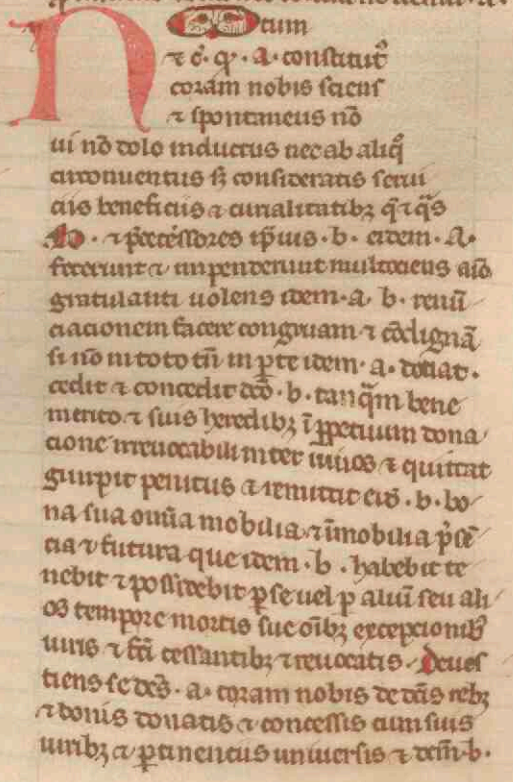 N tum
⁊ c̄. q̱. A. constitut⁹
coram nobis sciens
⁊ spontaneus nō
ui nō dolo inductus nec ab aliq̊
circonuentus sꝫ consideratis serui
ciis beneficiis ⁊ curialitatibꝫ
⁊ p̄cc̄ssores ip̄ius . b . eidem . A .
fecerunt ⁊ impenderunt multociens aīo
gratulanti uolens idem . a . b . renū
ciacionem facere congruam ⁊ cōdignā
si nō in toto tn̄ in ꝑte idem . a . donat .
cedit ⁊ concedit dc̄o . b . tanq̄m bene
merito ⁊ suis heredibꝫ ī ꝑpetuum dona
cione irreuocabili inter uiuos ⁊ quittat
gurpit penitus ⁊ remittit eid̄ . b . bo
na sua omīa mobilia ⁊ īmobilia p̄sē
cia ⁊ futura que idem . b . habebit te
nebit ⁊ possidebit ꝑ se uel ꝑ aliū seu ali
os tempore mortis sue oībꝫ excepcionibꝫ
iuris ⁊ fc̄i cessantibꝫ ⁊ reuocatis . Deues
tiens se dc̄s . a . coram nobis de dc̄is rebꝫ
⁊ bonis donatis ⁊ concessis cum suis
iuribꝫ ⁊ ꝑtinenciis uniuersis ⁊ dc̄m . b .